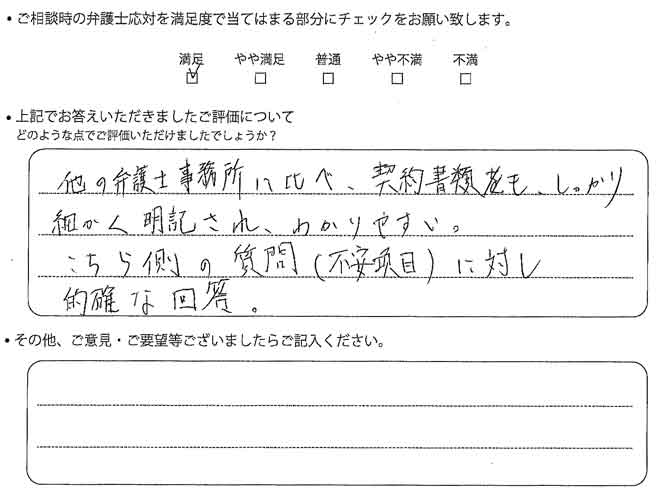 ・ご相談時の弁護士応対を満足度で当てはまる部分にチェックをお願い致します。
満足 やや満足 普通 やや不満 不満
・上記でお答えいただきましたご評価について
どのような点でご評価いただけましたでしょうか？
他の弁護士事務所に比べ、契約書類をも、しっかり
細かく明記され、わかりやすい。
こちら側の質問(不安項目)に対し
的確な回答。
・その他、ご意見・ご要望等ございましたらご記入ください。